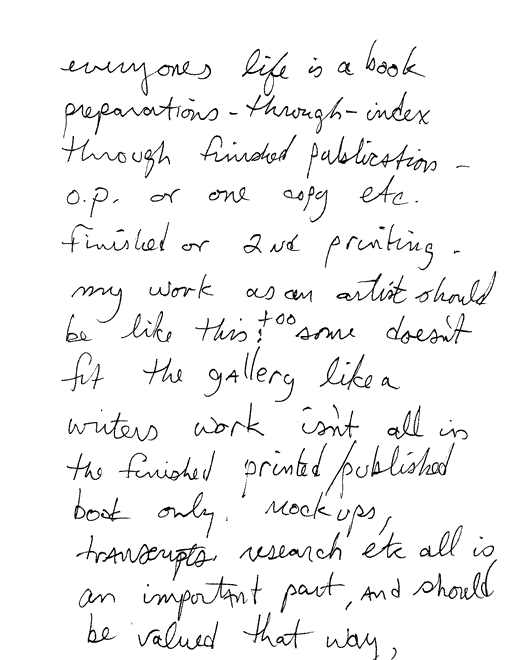 everyones life is a book
preparations - through - index
through finished publication -
o.p. or one copy etc.
finished or 2nd printing -
my work as an artist should
be like this too: some doesn't
fit the gallery like a
writers work isn't all in
the finished printed/published
book only. Mock ups,
transcripts, research etc all is
an important part, and should
be valued that way,